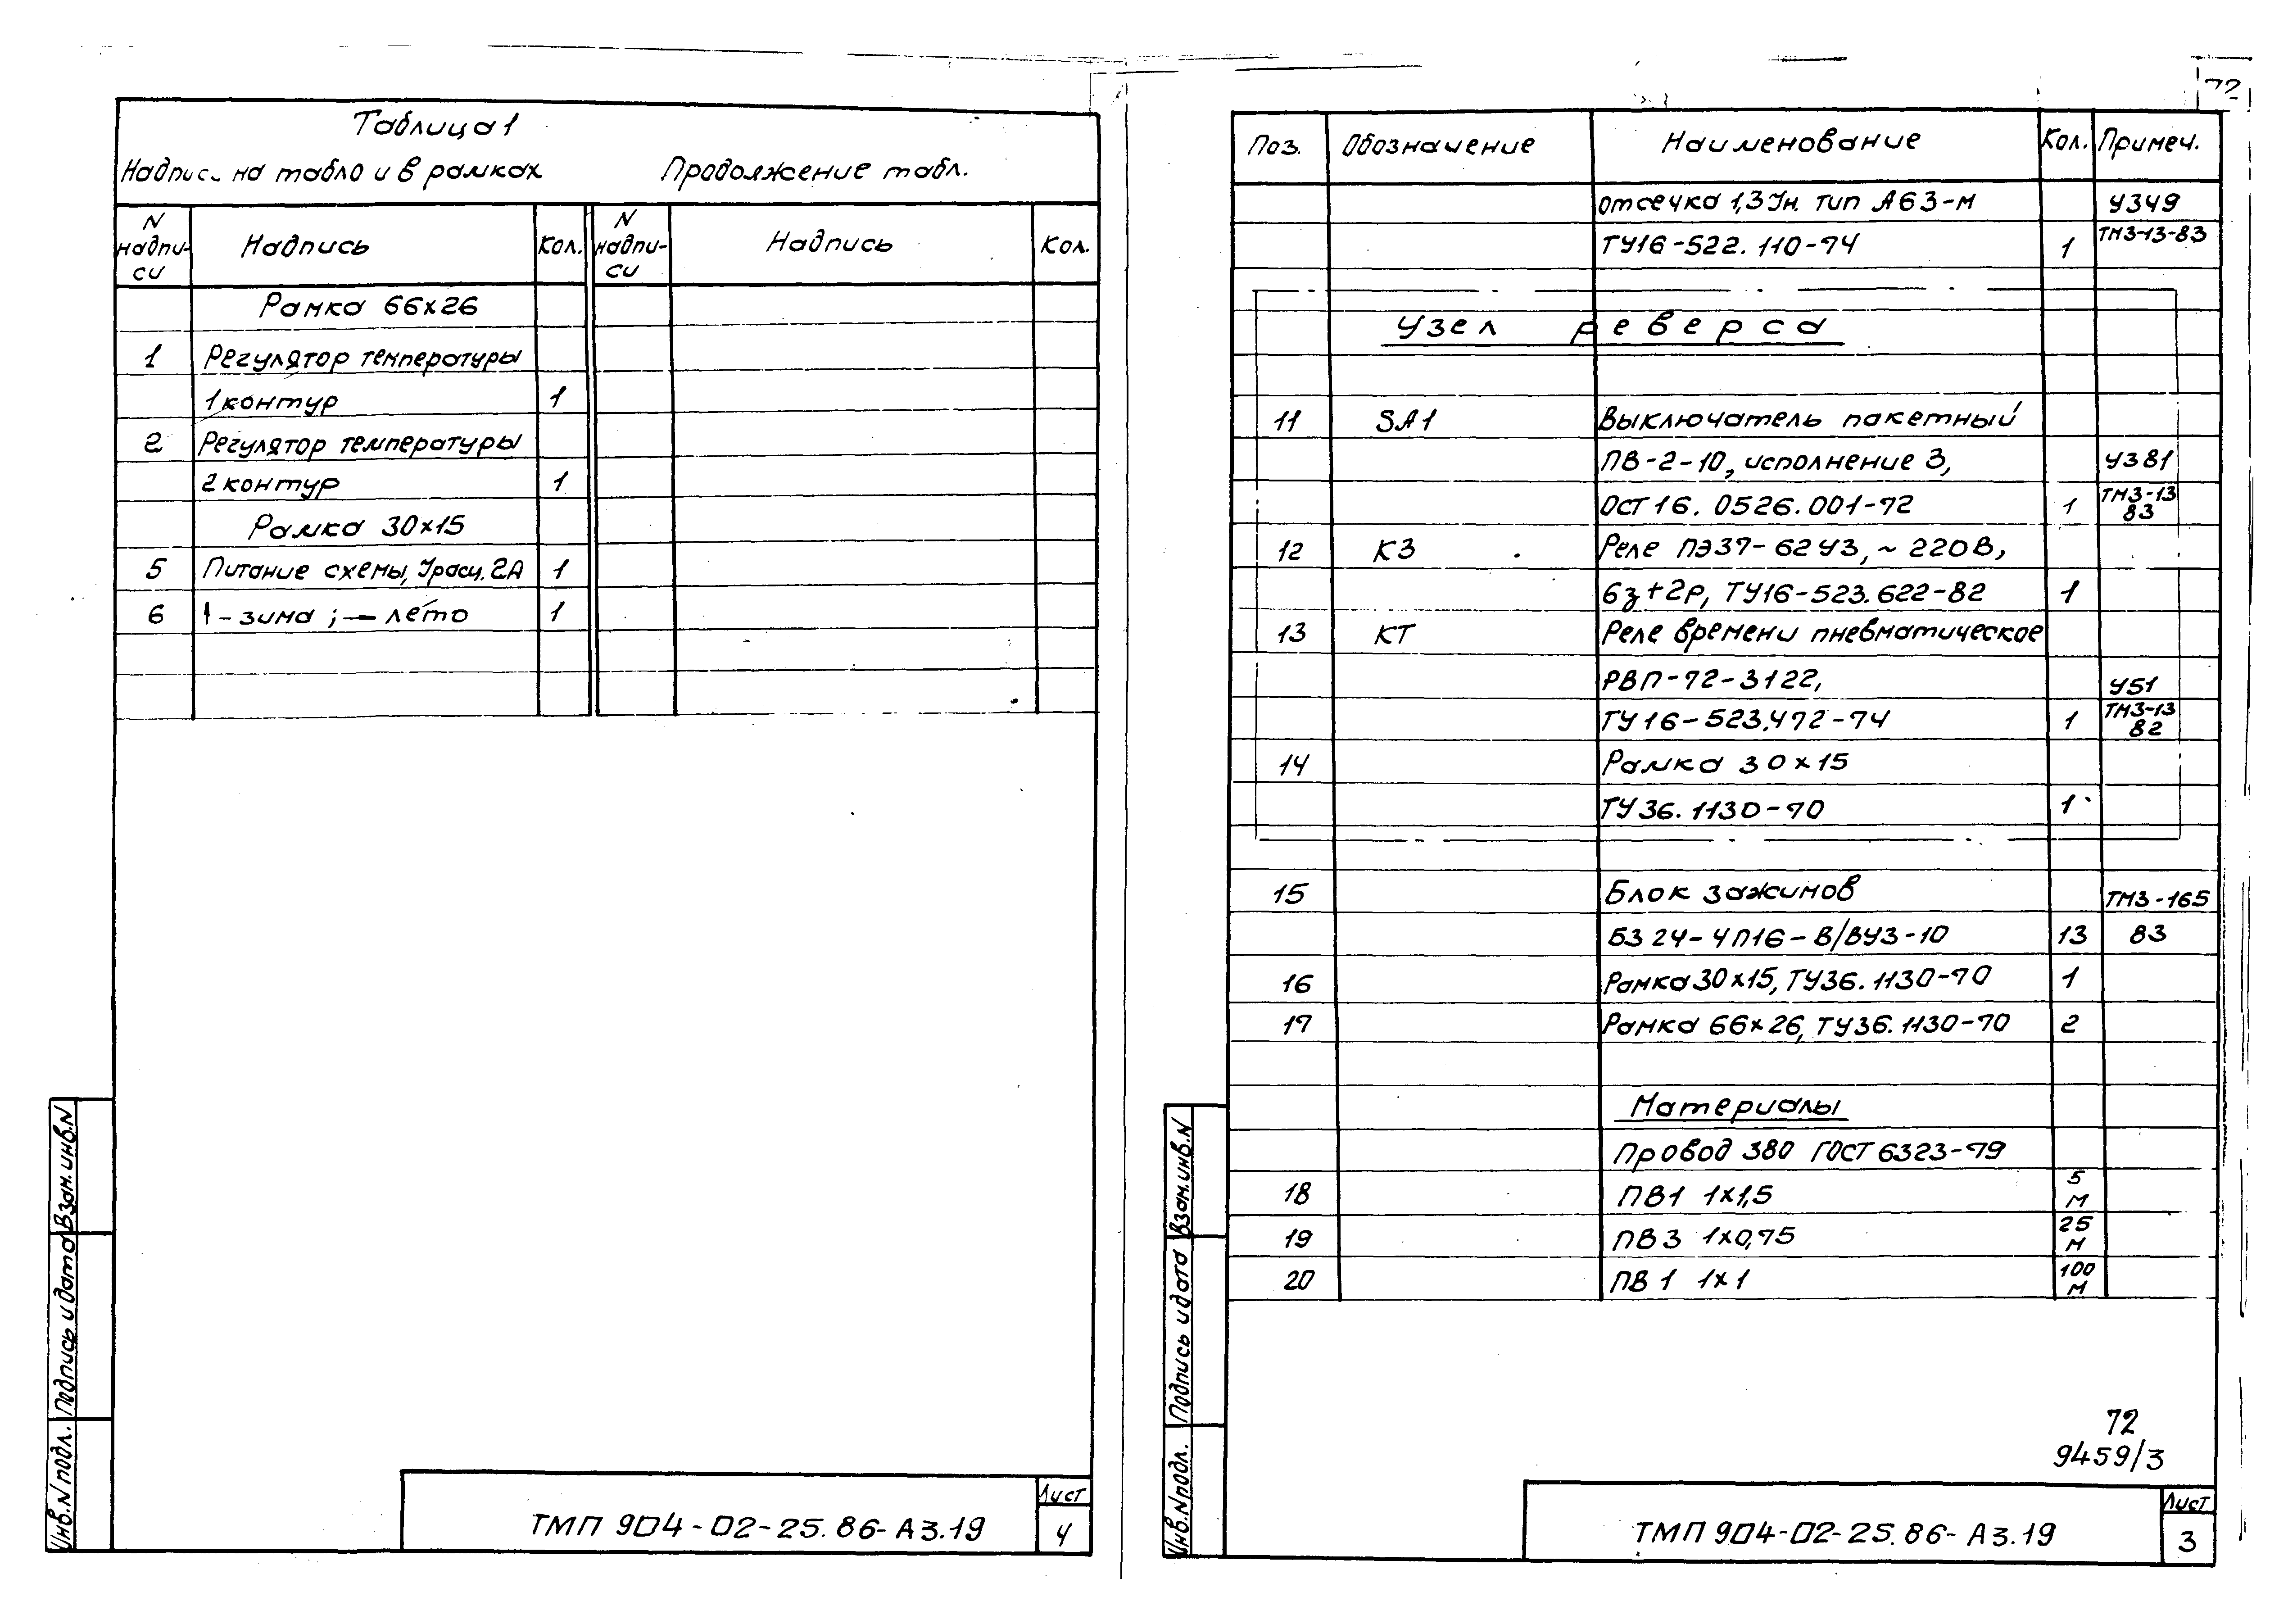 Таблица 1
Надпис. на табло и в рамках Продолжение табл.
N надпи- си Надпись Кол. N надпи- си Надпись Кол.
Рамка 66х26
1 Регулятор температуры
1 контур 1
2 Регулятор температуры
2 контур 1
Рамка 30х15
5 Питание схемы, Iрасц. 2А 1
6 – зима ; — лето 1
Инв. N подл. Подпись и дата Взам. инв. N
ТМП 904-02-25.86-А3.19
Лист
4
72
Поз. Обозначение Наименование Кол. Примеч.
отсечка 1,3 Iн. тип А63-М У349
ТУ16-522.110-74 1 ТМ3-13-83
Узел реверса
11 SA1 Выключатель пакетный
ПВ-2-10, исполнение 3, У381
ОСТ 16. 0526.001-72 1 ТМ3-13 83
12 К3 Реле ПЭ37-62У3, ~ 220В,
6з+2р, ТУ16-523.622-82 1
13 КТ Реле времени пневматическое
РВП-72-3122, У51
ТУ16-523.472-74 1 ТМ3-13 82
14 Рамка 30х15
ТУ36.1130-70 1
15 Блок зажимов ТМ3-165
Б3 24-4П16-В/ВУ3-10 13 83
16 Рамка 30х15, ТУ36.1130-70 1
17 Рамка 66х26, ТУ36.1130-70 2
Материалы
Провод 380 ГОСТ 6323-79
18 ПВ1 1х1,5 5 м
19 ПВ3 1х0,75 25 м
20 ПВ1 1х1 100 м
72
9459/3
Инв. N подл. Подпись и дата Взам. инв. N
ТМП 904-02-25.86-А3.19
Лист
3